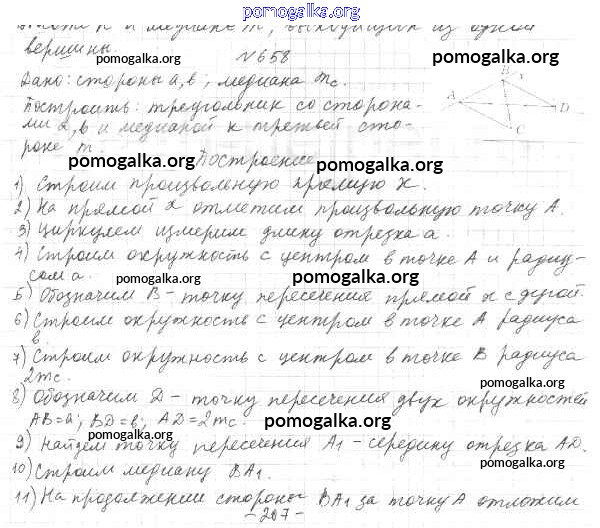 pomogalka.org
высоте h и медиане m, выходящих из одной
вершины.
pomogalka.org
№658
pomogalka.org
Дано: стороны a, b; медиана mc.
Построить: треугольник со сторона-
ми a, b и медианой к третьей сто-
роне m.
A
B
x
C
D
pomogalka.org
Построение
pomogalka.org
1) Строим произвольную прямую x.
pomogalka.org pomogalka.org
2) На прямой x отметим произвольную точку A.
3) Циркулем измерим длину отрезка a.
pomogalka.org
4) Строим окружность с центром в точке A и радиу-
сом a.
pomogalka.org pomogalka.org
5) Обозначим B - точку пересечения прямой x с дугой.
6) Строим окружность с центром в точке A радиуса
b.
pomogalka.org pomogalka.org
7) Строим окружность с центром в точке B радиуса
2mc.
pomogalka.org
8) Обозначим D - точку пересечения двух окружностей
AB=a; BD=b; AD=2mc.
pomogalka.org pomogalka.org
9) Найдем точку пересечения A1 - середину отрезка AD.
10) Строим медиану BA1.
pomogalka.org pomogalka.org
11) На продолжении стороны BA1 за точку A отложим
-207-
pomogalka.org